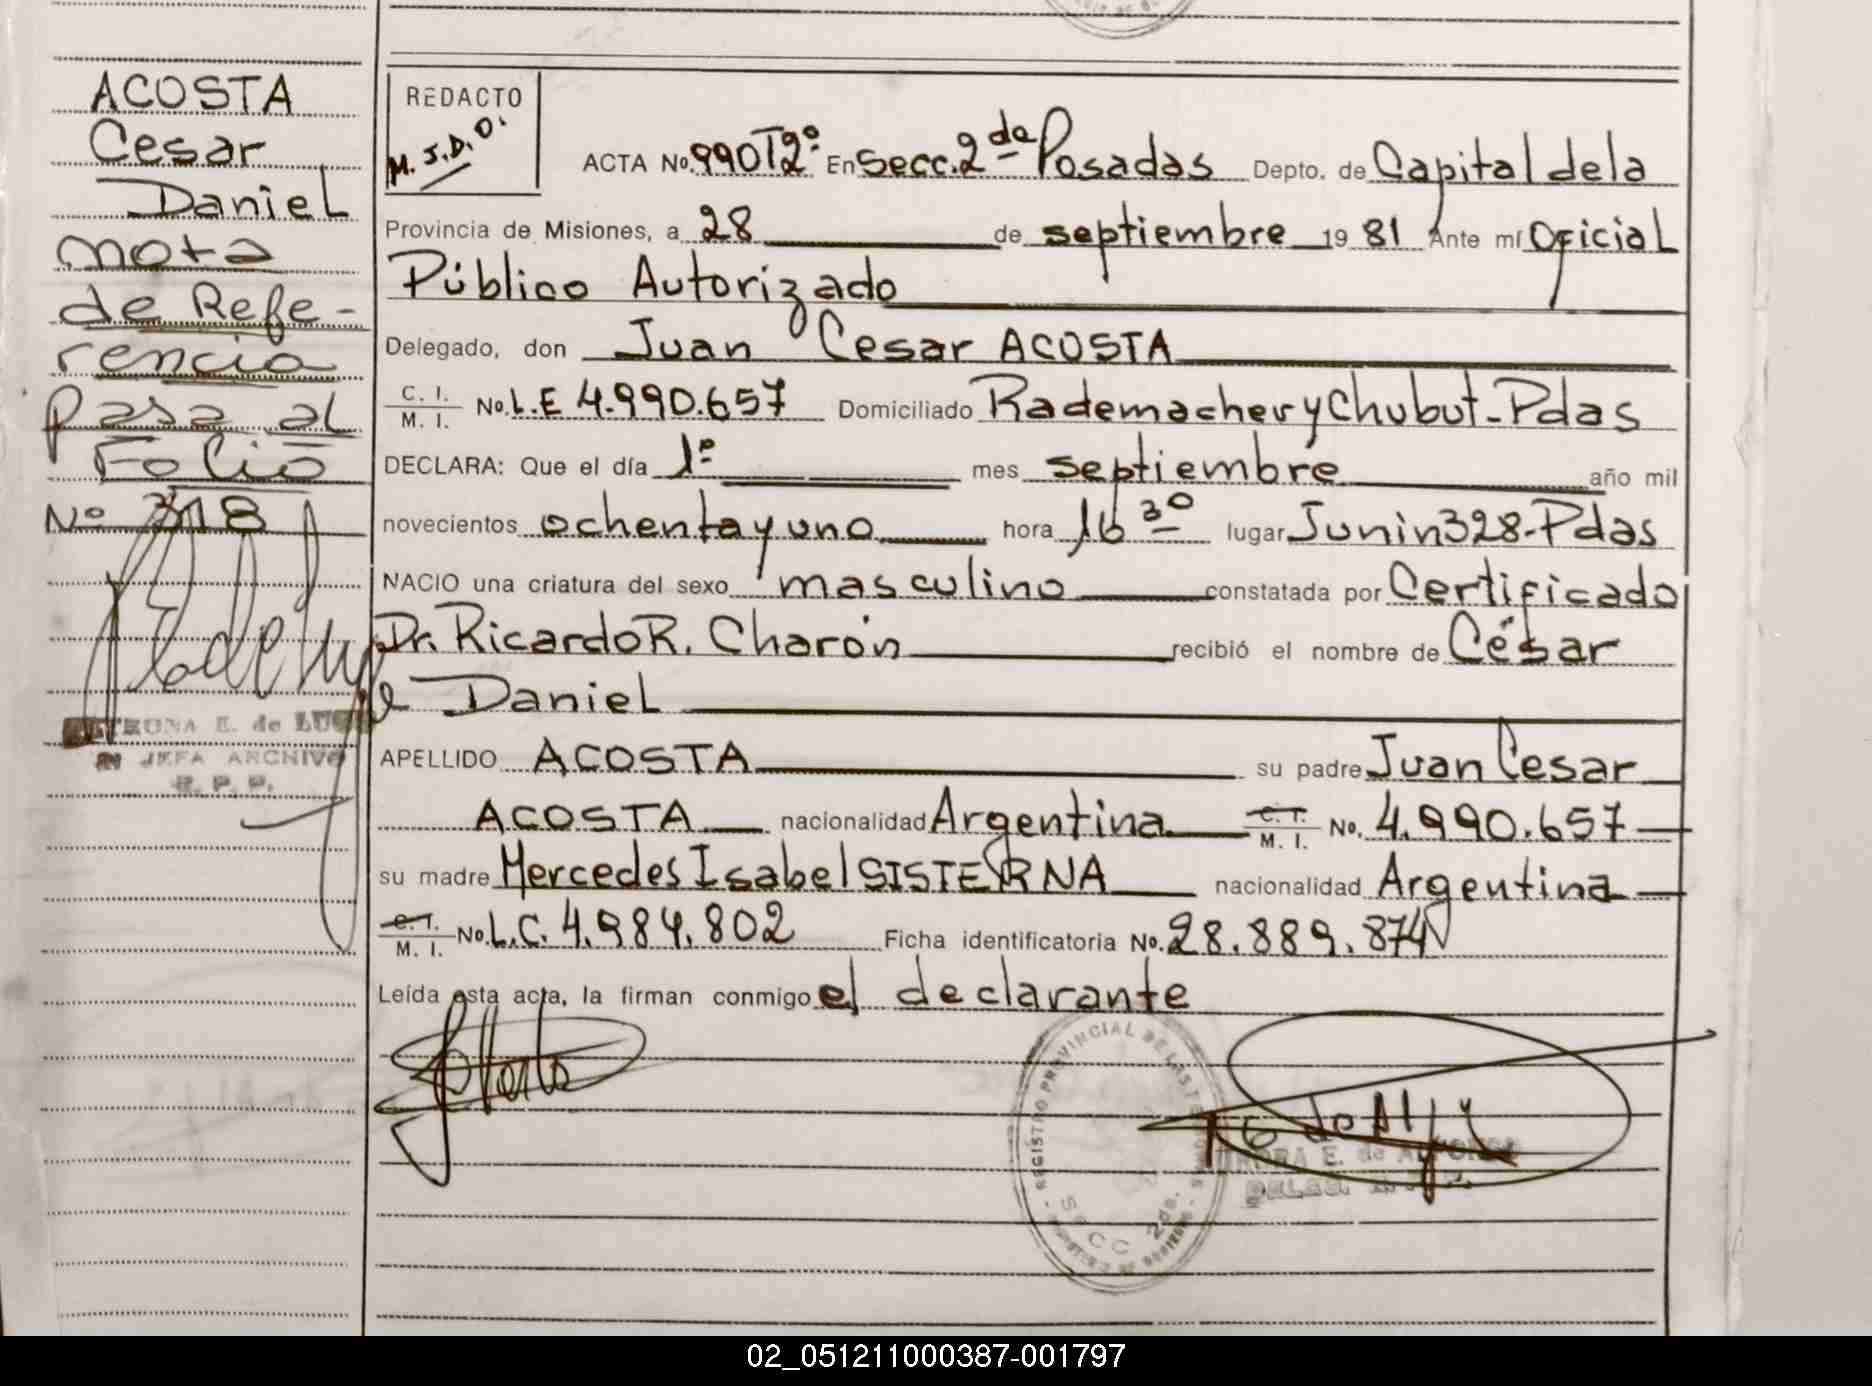 ACOSTA
Cesar
Daniel
nota
de Refe-
rencia
pasa al
Folio
Nº 318
PETRONA E. de LUQUE
JEFA ARCHIVO
R. P. P.
REDACTO
M. J. D. O.
ACTA No. 990 T2º En Secc. 2da Posadas Depto. de Capital de la
Provincia de Misiones, a 28 de septiembre 19 81 Ante mí Oficial
Público Autorizado
Delegado, don Juan Cesar ACOSTA
C. I. / M. I. No. L.E 4.990.657 Domiciliado Rademacher y Chubut - Pdas
DECLARA: Que el día 1º mes septiembre año mil
novecientos ochenta y uno hora 16 30 lugar Junin 328 - Pdas
NACIO una criatura del sexo masculino constatada por Certificado
Dr. Ricardo R. Charón recibió el nombre de César
Daniel
APELLIDO ACOSTA su padre Juan Cesar
ACOSTA nacionalidad Argentina C. I. / M. I. No. 4.990.657
su madre Mercedes Isabel SISTERNA nacionalidad Argentina
C. I. / M. I. No. L.C. 4.984.802 Ficha identificatoria No. 28.889.874N
Leída esta acta, la firman conmigo el declarante
REGISTRO PROVINCIAL DE LAS PERSONAS
SECC 2da.
E. de
DELEG.
02_051211000387-001797